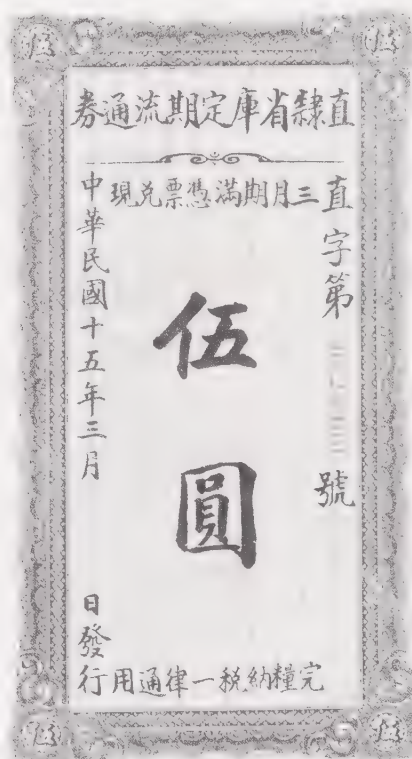 直隸省庫定期流通券
三月期滿憑票兌現
直字第 號
伍圓
中華民國十五年三月 日發行
完糧納稅一律通用
伍
伍
伍
伍